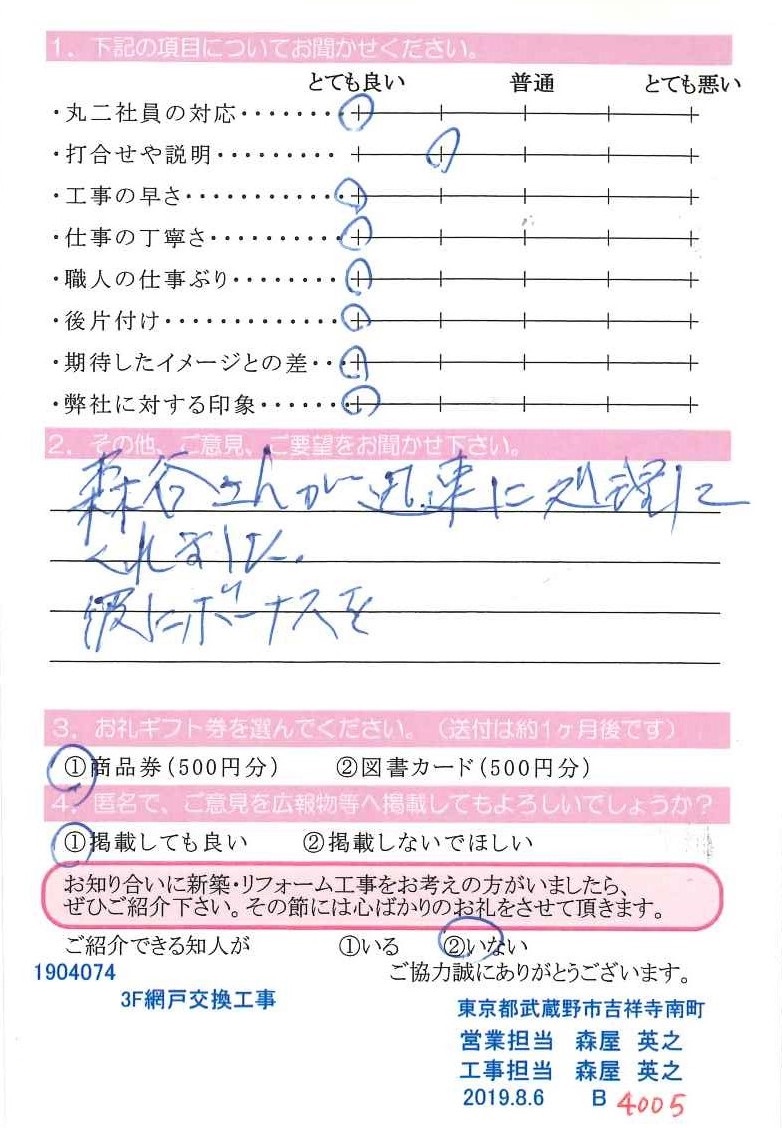 1. 下記の項目についてお聞かせください。
とても良い 普通 とても悪い
・丸二社員の対応・・・・・・・
・打合せや説明・・・・・・・・・
・工事の早さ・・・・・・・・・・・
・仕事の丁寧さ・・・・・・・・・
・職人の仕事ぶり・・・・・・・
・後片付け・・・・・・・・・・・・
・期待したイメージとの差・・・
・弊社に対する印象・・・・・・
2. その他、ご意見、ご要望をお聞かせ下さい。
森谷さんが迅速に処理して
くれました。
彼にボーナスを
3. お礼ギフト券を選んでください。(送付は約1ヶ月後です)
①商品券(500円分) ②図書カード(500円分)
4. 匿名で、ご意見を広報物等へ掲載してもよろしいでしょうか?
①掲載しても良い ②掲載しないでほしい
お知り合いに新築・リフォーム工事をお考えの方がいましたら、
ぜひご紹介下さい。その節には心ばかりのお礼をさせて頂きます。
ご紹介できる知人が ①いる ②いない
1904074 ご協力誠にありがとうございます。
3F網戸交換工事
東京都武蔵野市吉祥寺南町
営業担当 森屋 英之
工事担当 森屋 英之
2019.8.6 B 4005